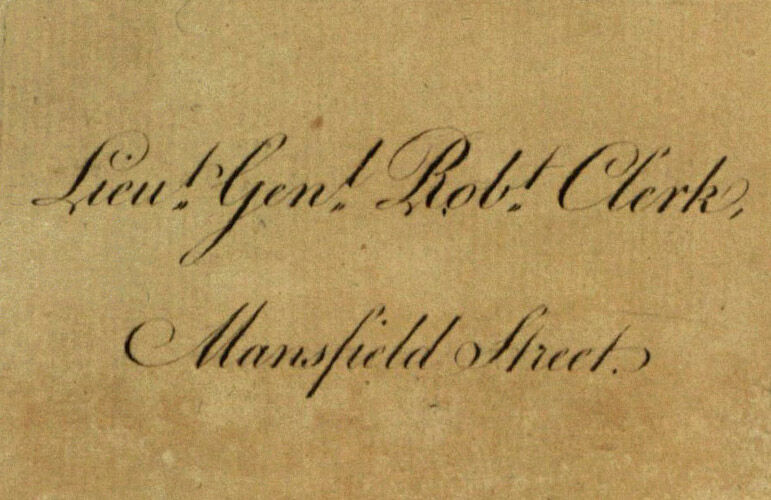 Lieu.t Gen.l Rob.t Clerk,
Mansfield Street.